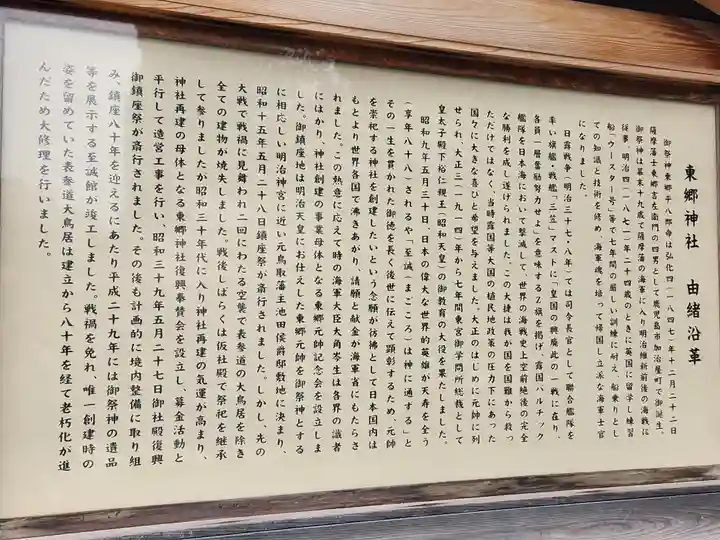 東郷神社　由緒沿革
御祭神東郷平八郎命は弘化四(一八四七)年十二月二十二日
薩摩藩士東郷吉左衛門の四男として鹿児島市加治屋町で御誕生、
御祭神は幕末十九歳で薩摩藩の海軍に入り明治維新前後の海戦に
従事、明治四(一八七一)年二十四歳のときに英国に留学し練習
船「ウースター号」等で七年間の厳しい訓練に耐え、船乗りとし
ての知識と技術を修め、海軍魂を培って帰国し立派な海軍士官
になりました。
日露戦争(明治三十七・八年)では司令長官として聯合艦隊を
率い旗艦・戦艦「三笠」マストに「皇国の興廃此の一戦に在り、
各員一層奮励努力せよ」を意味するZ旗を掲げ、露国バルチック
艦隊を日本海において撃滅して、世界の海戦史上空前絶後の完全
な勝利を成し遂げられました。この大捷は我が国を国難から救っ
ただけではなく、当時露国等大国の植民地政策の圧力下にあった
国々に大きな喜びと希望を与えました。大正のはじめに元帥に列
せられ、大正三(一九一四)年から七年間東宮御学問所総裁として
皇太子殿下裕仁親王(昭和天皇)の御教育の大役を果たしました。
昭和九年五月三十日、日本の偉大な世界的英雄が天寿を全う
(享年八十八)されるや「至誠(まごころ)は神に通する」と
その一生を貫かれた御徳を長く後世に伝えて顕彰するため、元帥
を崇祀する神社を創建したいという念願が彷彿として日本国内は
もとより世界各国で沸きあがり、請願と献金が海軍省にもたらさ
れました。この熱意に応えて時の海軍大臣大角岑生は各界の識者
にはかり、神社創建の事業母体となる東郷元帥記念会を設立しま
した。御鎮座地は明治天皇にお仕えした東郷元帥を御祭神とする
に相応しい明治神宮に近い元鳥取藩主池田侯爵邸敷地に決まり、
昭和十五年五月二十八日鎮座祭が斎行されました。しかし、先の
大戦で戦禍に見舞われ二回にわたる空襲で表参道の大鳥居を除き
全ての建物が焼失しました。戦後しばらくは仮社殿で祭祀を継承
して参りましたが昭和三十年代に入り神社再建の気運が高まり、
神社再建の母体となる東郷神社復興奉賛会を設立し、募金活動と
平行して造営工事を行い、昭和三十九年五月二十七日御社殿復興
御鎮座祭が斎行されました。その後も計画的に境内整備に取り組
み、鎮座八十年を迎えるにあたり平成二十九年には御祭神の遺品
等を展示する至誠館が竣工しました。戦禍を免れ、唯一創建時の
姿を留めていた表参道大鳥居は建立から八十年を経て老朽化が進
んだため大修理を行いました。